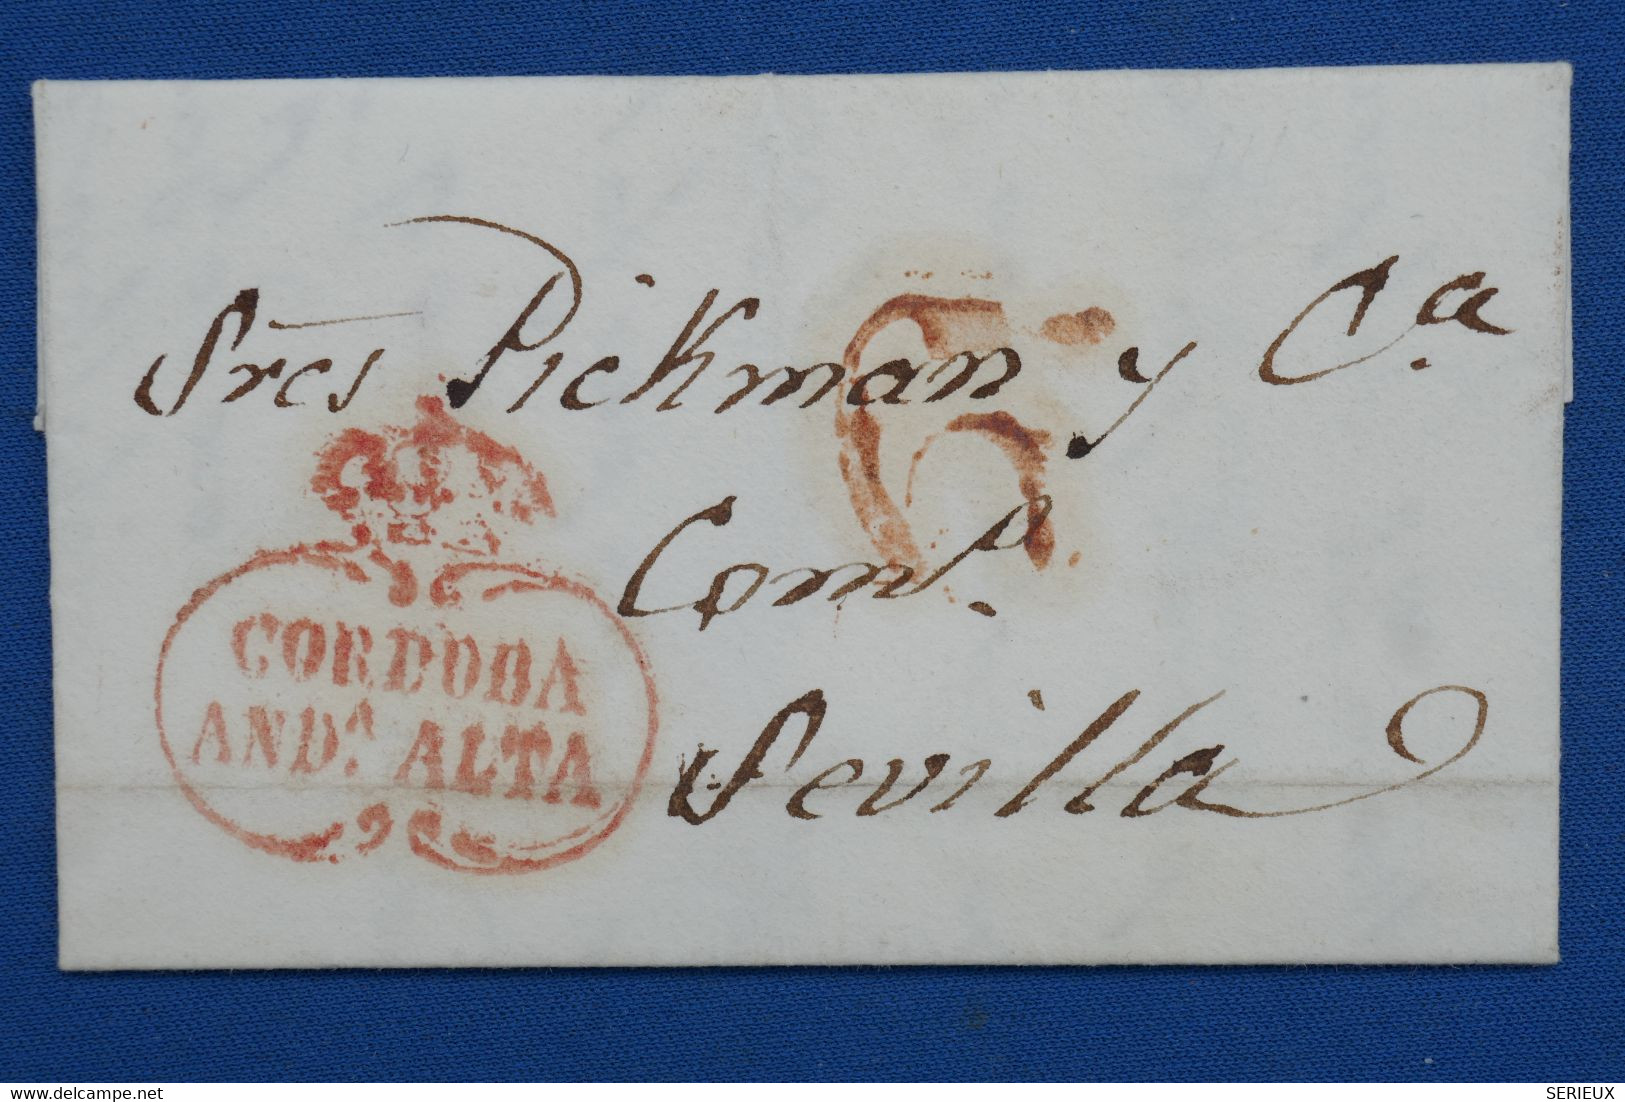 Sres Pickman y Cª
6
Comº
Sevilla
CORDOBA
ANDª. ALTA
www.delcampe.net
SERIEUX